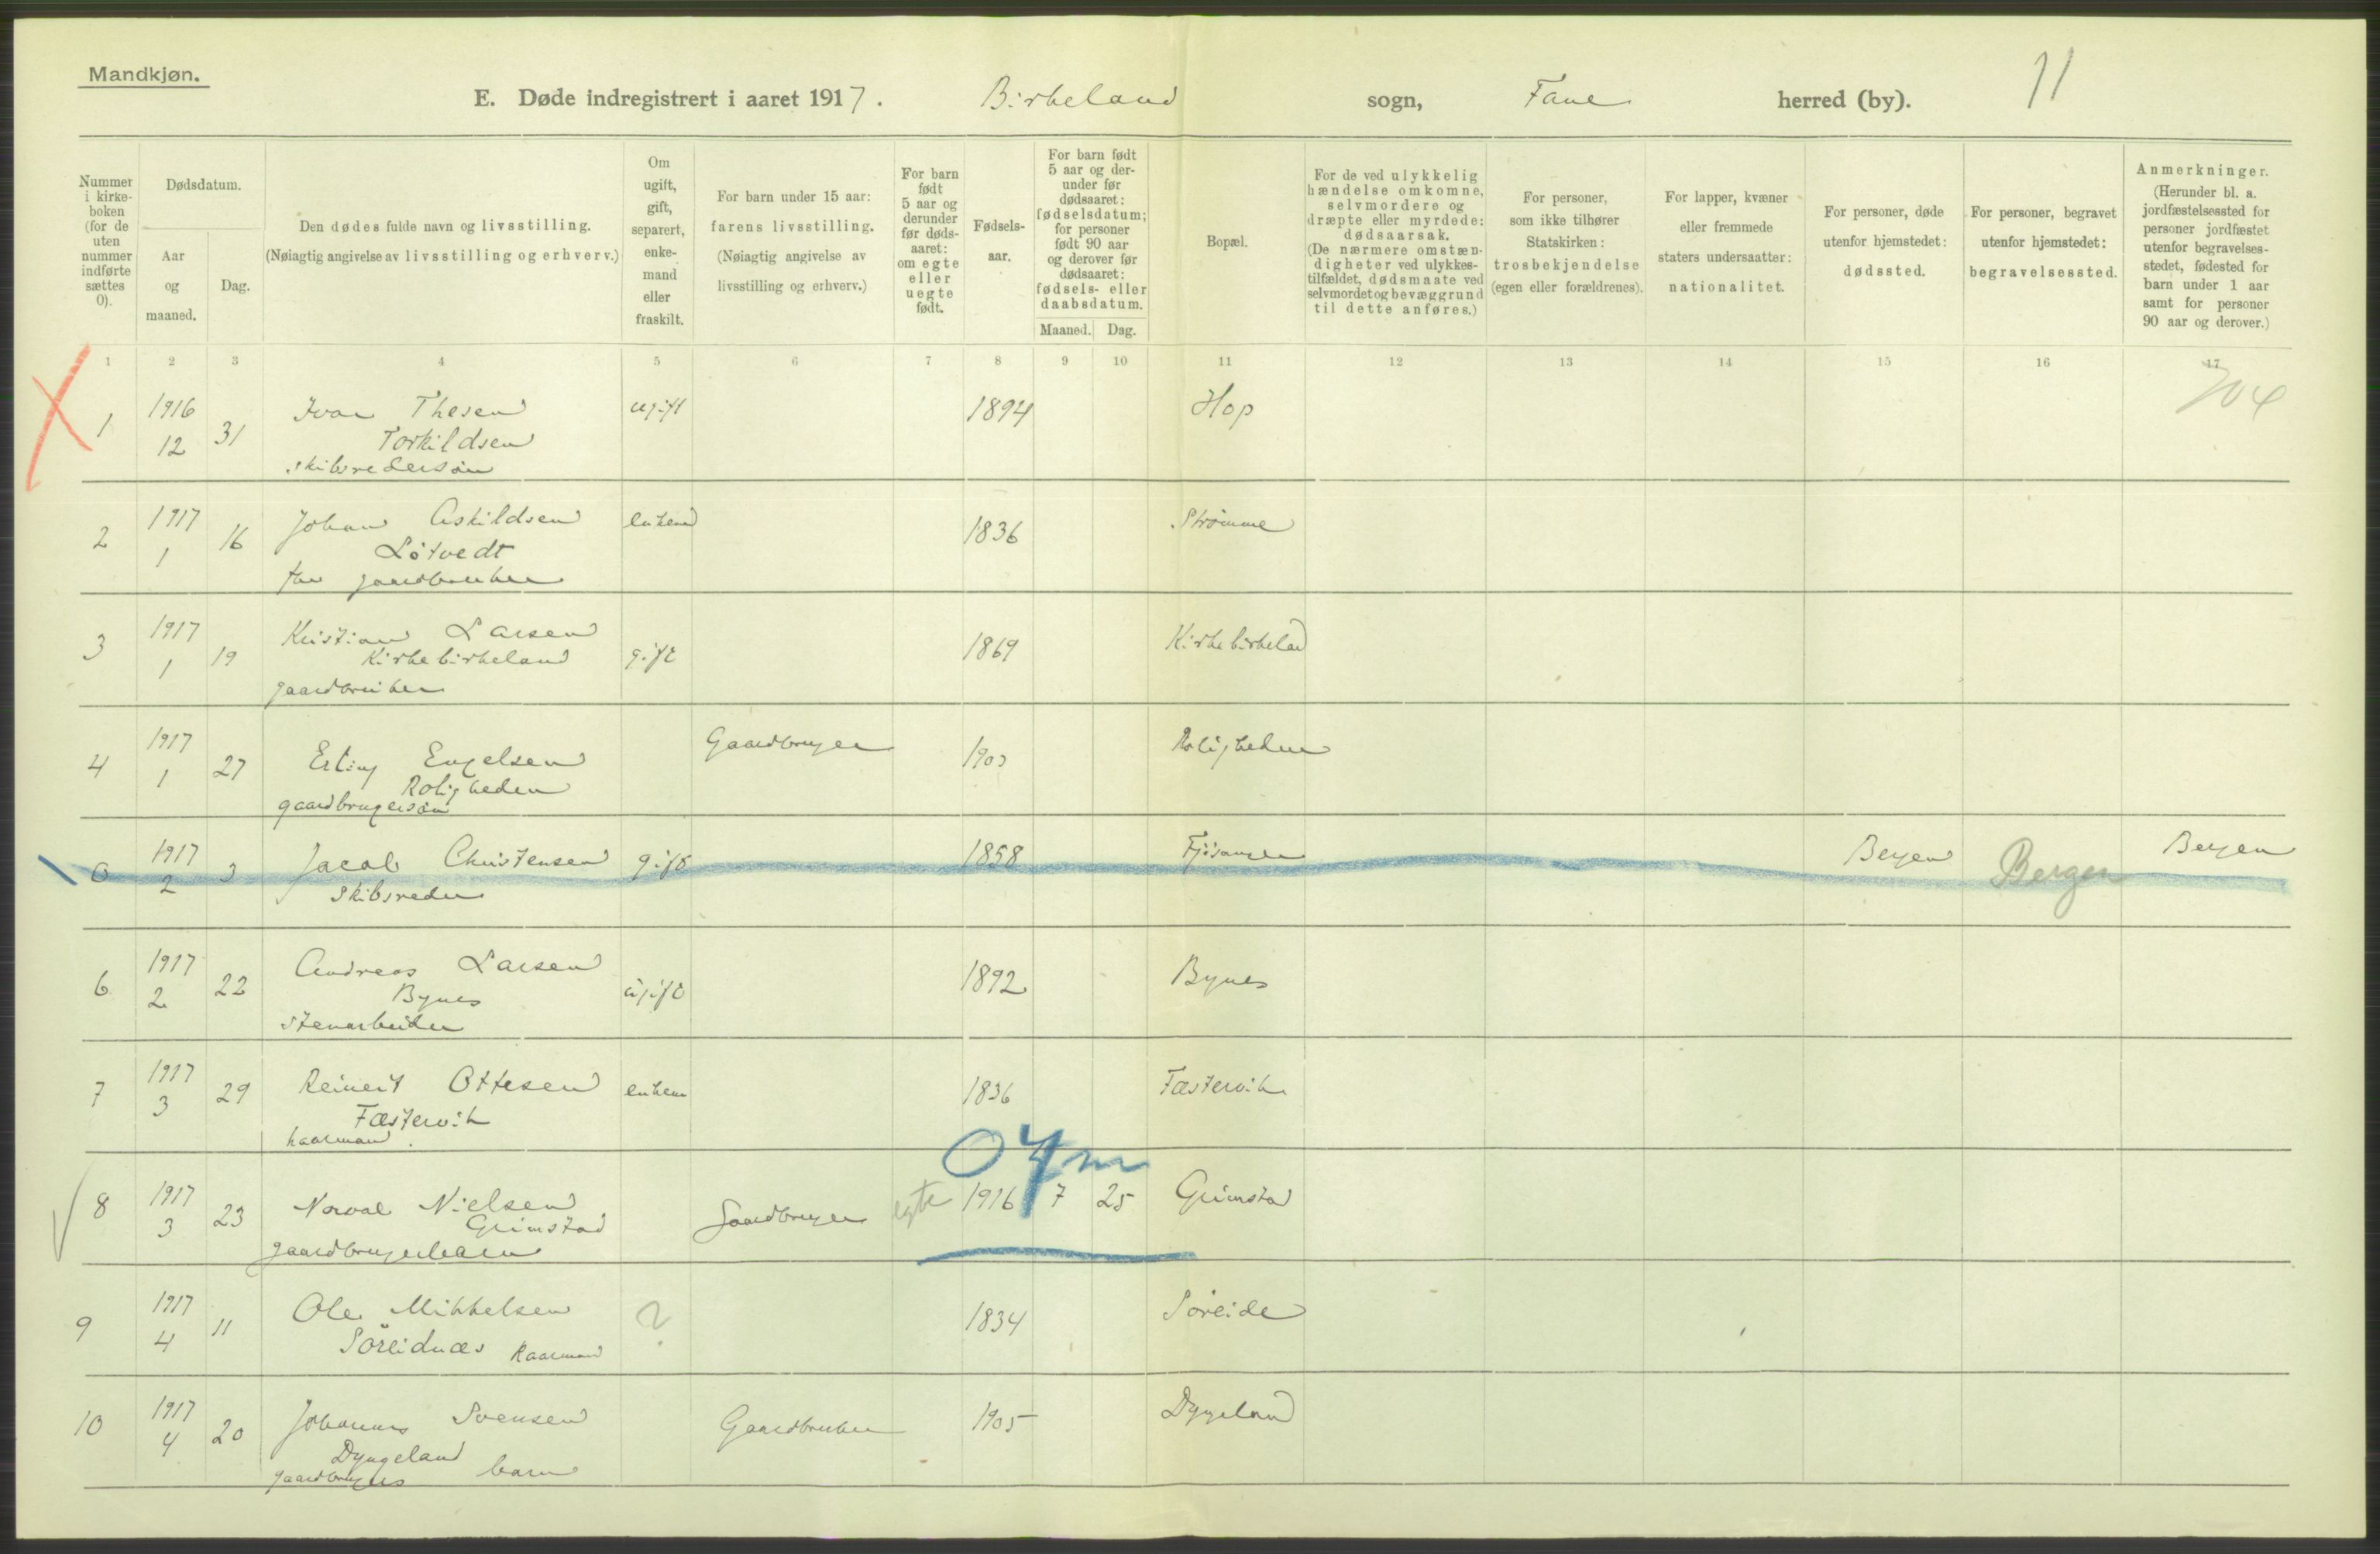 Mandkjøn.
E. Døde indregistrert i aaret 1917. Birkeland sogn, Fane herred (by). 11
Nummer i kirke-boken (for de uten nummer indførte sættes 0).
Dødsdatum.
Aar og maaned.
Dag.
Den dødes fulde navn og livsstilling.
(Nøiagtig angivelse av livsstilling og erhverv.)
Om ugift, gift, separert, enke-mand eller fraskilt.
For barn under 15 aar:
farens livsstilling.
(Nøiagtig angivelse av livsstilling og erhverv.)
For barn født 5 aar og derunder før døds-aaret: om egte eller uegte født.
Fødsels-aar.
For barn født 5 aar og der-under før dødsaaret: fødselsdatum; for personer født 90 aar og derover før dødsaaret: fødsels- eller daabsdatum.
Maaned. Dag.
Bopæl.
For de ved ulykkelig hændelse omkomne, selvmordere og dræpte eller myrdede: dødsaarsak.
(De nærmere omstæn-digheter ved ulykkes-tilfældet, dødsmaate ved selvmordet og bevæggrund til dette anføres.)
For personer, som ikke tilhører Statskirken: trosbekjendelse (egen eller forældrenes).
For lapper, kvæner eller fremmede staters undersaatter: nationalitet.
For personer, døde utenfor hjemstedet: dødssted.
For personer, begravet utenfor hjemstedet: begravelsessted.
Anmerkninger.
(Herunder bl. a. jordfæstelsessted for personer jordfæstet utenfor begravelses-stedet, fødested for barn under 1 aar samt for personer 90 aar og derover.)
1 2 3 4 5 6 7 8 9 10 11 12 13 14 15 16 17
1 1916 12 31 Ivar Thesen ugift 1894 Hop 704
Torkildsen
skibsredersøn
2 1917 1 16 Johan Askildsen enkem 1836 Strømme
Løtvedt
før gaardbruker
3 1917 1 19 Kristian Larsen gift 1869 Kirkebirkeland
Kirkebirkeland
gaardbruker
4 1917 1 27 Erling Engelsen Gaardbruger 1903 Roligheden
Roligheden
gaardbrugersøn
0 1917 2 3 Jacob Christensen gift 1858 Fjøsanger Bergen Bergen Bergen
Skibsreder
6 1917 2 22 Andreas Larsen ugift 1892 Bynes
Bynes
stenarbeider
7 1917 3 29 Reinert Ottesen enkem 1836 Fæstervik
Fæstervik
kaarmand.
0 7 m
8 1917 3 23 Norval Nielsen Gaardbruger egte 1916 7 25 Grimstad
Grimstad
gaardbrugerbarn
9 1917 4 11 Ole Mikkelsen ? 1834 Søreide
Søreidnæs kaarmand
10 1917 4 20 Johannes Svensen Gaardbruker 1905 Dyngeland
Dyngeland
gaardbrugers barn